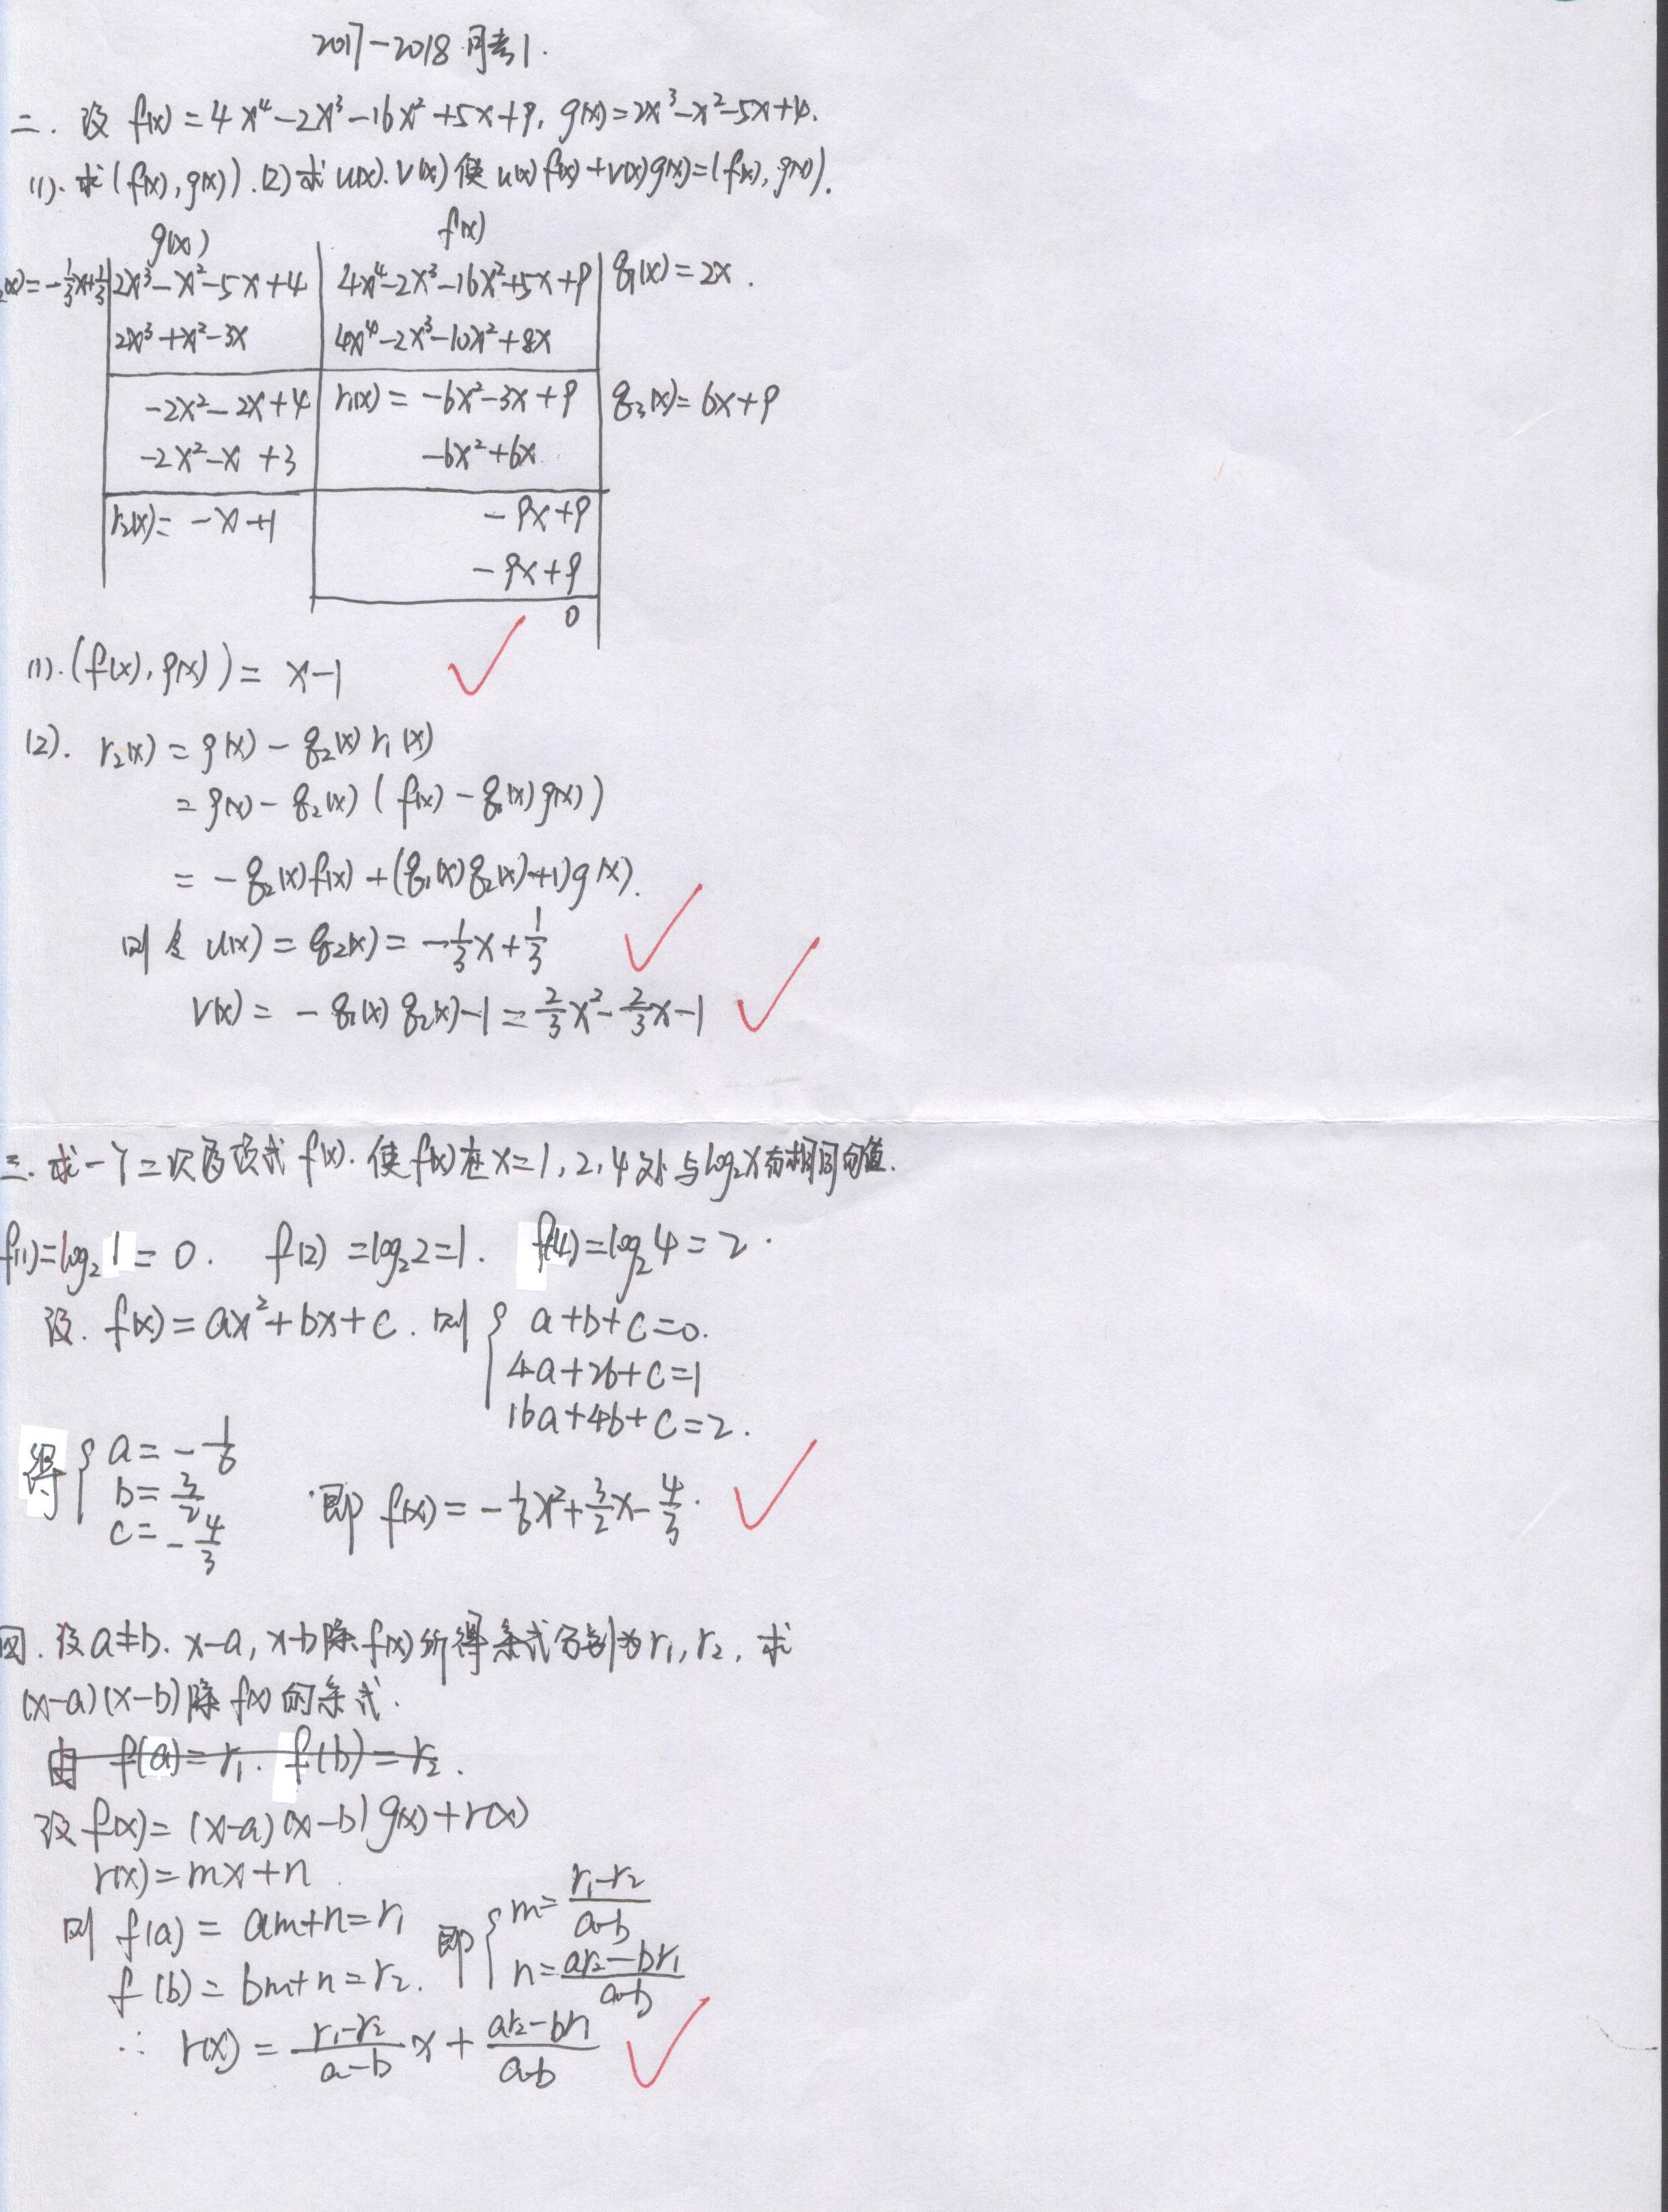 2017-2018 月考1.
二. 设 f(x) = 4x⁴-2x³-16x²+5x+9, g(x)=2x³-x²-5x+4.
(1). 求(f(x), g(x)). (2) 求 u(x). v(x) 使 u(x)f(x)+v(x)g(x)=(f(x), g(x)).
g(x) f(x)
₂(x)=-1/3x+1/3 | 2x³-x²-5x+4 | 4x⁴-2x³-16x²+5x+9 | q₁(x)=2x.
2x³+x²-3x | 4x⁴-2x³-10x²+8x
-2x²-2x+4 | r₁(x)= -6x²-3x+9 | q₃(x)=6x+9
-2x²-x+3 | -6x²+6x
r₂(x)= -x+1 | -9x+9
-9x+9
0
(1). (f(x), g(x)) = x-1
(2). r₂(x) = g(x) - q₂(x) r₁(x)
= g(x) - q₂(x) ( f(x) - q₁(x)g(x))
= -q₂(x)f(x) + (q₁(x)q₂(x)+1)g(x).
则令 u(x) = q₂(x) = -1/3x + 1/3
v(x) = -q₁(x) q₂(x)-1 = 2/3x² - 2/3x-1
三. 求一个二次多项式 f(x). 使f(x)在x=1, 2, 4处与log₂x有相同的值.
f(1)=log₂1=0. f(2)=log₂2=1. f(4)=log₂4=2.
设. f(x) = ax²+bx+c. 则 { a+b+c=0.
4a+2b+c=1
16a+4b+c=2.
得 { a = -1/6
b = 3/2
c = -4/3
即 f(x) = -1/6x²+3/2x-4/3.
四. 设a≠b. x-a, x-b除f(x)所得余式分别为r₁, r₂, 求
(x-a)(x-b)除f(x)的余式.
由 f(a)=r₁. f(b)=r₂.
设 f(x) = (x-a)(x-b)g(x)+r(x)
r(x)=mx+n.
则 f(a) = am+n=r₁ 即 { m=(r₁-r₂)/(a-b)
f(b) = bm+n=r₂. n=(ar₂-br₁)/(a-b)
∴ r(x) = (r₁-r₂)/(a-b) x + (ar₂-br₁)/(a-b)